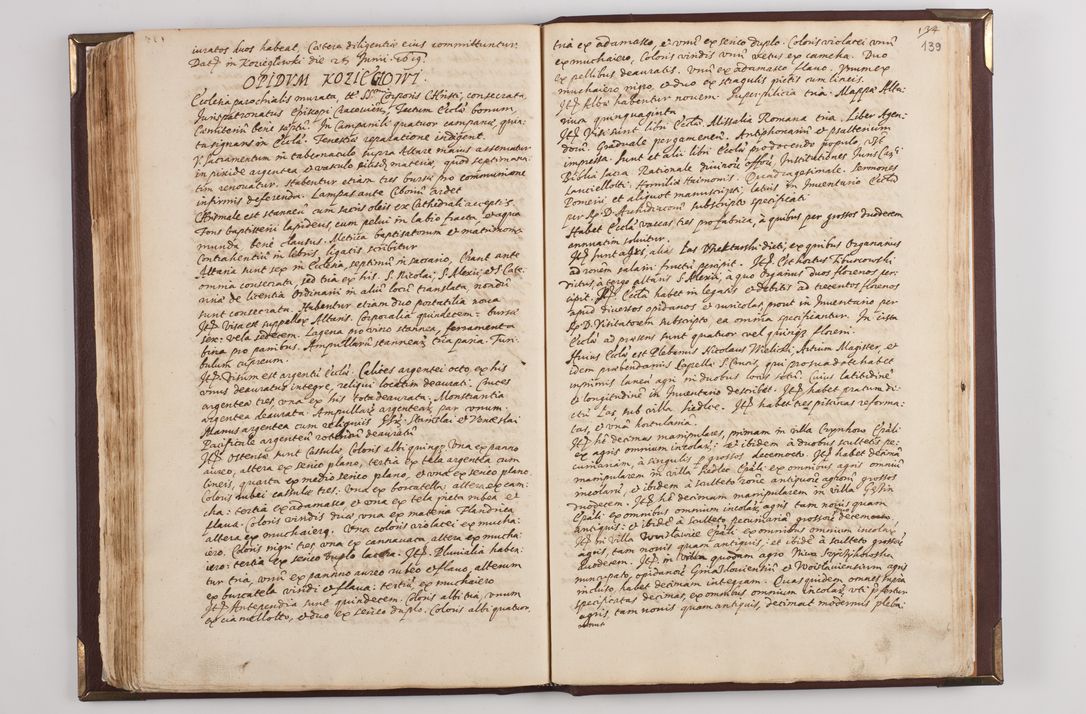 iuratos duos habeat, Caetera diligentiae eius committuntur.
Dat in Koziegłowki die 25 Junii 1619.
OPIDVM KOZIEGŁOWI.
Ecclesia parochialis murata, SS Corporis Christi, consecrata,
Jurispatronatus Episcopi Cracoviens, Tectum Eccłae bonum,
Caemiterium bene septu. In Campanili quatuor campanae, quin
ta signans in Eccła. Fenestrae reparatione indigent.
V. Sacramentum in tabernaculo supra Altare maius asservatur
in pixide argentea et vasculo eiusd materiae, quod septimana
tim renovatur. Habentur etiam tres bursae pro communione
infirmis deferenda. Lampas ante Ciborium ardet
Chrismale est stanneu cum sacris oleis ex Cathedrali acceptis.
Fons baptisterii lapideus, cum pelvi in labio fracta, et aqua
munda, bene clausus. Metrica baptisatorum et matrimonia
Contrahentiu in libris ligatis scribitur
Altaria sunt sex in Ecclesia, septimu in sacrario, Erant ante
omnia consecrata, sed tria ex his S. Nicolai, S. Alexii, et S. Cate
rinae de licentia Ordinarii in aliu locu translata, nondu
sunt consecrata. Habentur etiam duo portatilia nova
It Visa est suppellex Altaris. Corporalia quindecem. Bursae
sex. Vela sedecem. Lagena pro vino stannea, ferramenta
bina pro panibus. Ampullaru stannear tria paria. Turi
bulum cupreum.
It Visum est argentu Eccłae. Calices argentei octo, ex his
unus deauratus integre, reliqui locatim deaurati. Cruces
argenteae tres una ex his tota deaurata. Monstrantia
argentea deaurata. Ampullar argentear par unum.
Manus argentea cum reliquiis SS. Stanislai et Venceslai
Pacificale argenteu rotundu deauratu
It Ostensae sunt Casulae Coloris albi quinq. Una ex panno
aureo, altera ex serico plano, tertia ex tela argentea cum
lineis, quarta ex medio serico plano, et una ex serico plano.
Coloris rubei casulae tres. Una ex burcatella altera ex cam
cha: tertia ex adamasco, et una ex tela picta rubea et
flava. Coloris viridis duae una ex materia Flandrica
altera ex muchaierq. Una coloris violatei ex mucha
iero. Coloris nigri tres una ex cannavaca altera ex mucha
iero: tertia ex serico duplo lacera. It Pluvialia haben
tur tria, unu ex pannino aureo rubeo et flavo, alterum
ex burcatela viridi et flava: tertiu ex muchaiero
It Antependia sunt quindecem. Coloris albi tria, unum
ex ciamellotto, et duo ex serico duplo. Coloris albi quatuor,
134
139
tria ex adamasco, et unu ex serico duplo. Coloris violatei unu
ex muchaiero, Coloris viridis unu vetus ex camcha. Duo
ex pellibus deauratis. Unu ex adamasco flavo. Unum ex
muchaiero nigro, et duo ex stragulis pictis cum lineis.
It Albae habentur novem. Superpilicia tria. Mappae Alta
rium quinquaginta
It Visi sunt libri Eccłae Missalia Romana tria. Liber Agen
doru. Graduale pergameneu. Antiphonariu et Psalterium
impressa. Sunt et alii libri Eccłae pro docendo populo, Vt
Biblia sacra. Rationale divinoru officior. Institutiones Juris Can
Lancellotti. Homiliae Haimonis. Quadragesimale. Sermones
Pomerii et aliquot manuscripti, latius in Inventario Eccłae
per Ap D. Archidiaconu subscripto specificati
Habet Eccła vaccas tres pro fabrica, à quibus per grossos duodecem
annuatim solvitur.
It sunt agri, alias Łas Dhektarski dicti, ex quibus Organarius
ad rationem salarii fructu percipit. It Cethortus Tiburcowski
dictus, à tergo altaris S. Alexii, a quo Organus duos florenos per
cipit. It Eccła habet in legatis et debitis ad trecentos florenos
apud diversos opidanos et ruricolas, prout in Inventario per
Ap D. Visitatorem subscripto, ea omnia specificantur. In cista
Eccłae ad praesens sunt quatuor vel quinque floreni.
Huius Eccłae est Plebanus Nicolaus Wielicki, Artium Magister, et
idem praebendarius Capellae S. Crucis, qui pro sua dote habet
inprimis laneu agri in duobus locis situ. Cuius latitudine
et longitudine in Inventario describit. It habet pratum di
ctu Łas, sub villa Siedlce. It habet tres piscinas reforma
tas, et una hortulania.
It he decimas manipulares, primam in villa Cynkow Epali
ex agris omnium incolar: et ibidem à duobus scultetis pe
cuniariam, à singulis grossos decemocto. It habet decima
manipularem in villa Siedlce Epali ex omnibus agris omniu
incolaru, et ibidem à sculteto ratione antiquor agroru grossos
duodecem. It he decimam manipularem in villa Gężin
Epali ex omnibus omnium incolar, agris tam novis quam
antiquis: et ibide à sculteto pecuniaria grossos decemocto
It in Villa Woisławice Epali ex omnibus omnium incolar
agris, tam novis quam antiquis: et ibide à sculteto grossos
duodecem. It in quodam agro Niwa
nuncupato, opidanor Gniazdoviensiu et Woislaviensium agris
incluso, habet decimam integram. Quasquidem omnes supra
specificatas decimas, ex omnibus omnium incolar, uti pfertur
agris, tam novis quam antiquis, decimat modernus pleba
nus